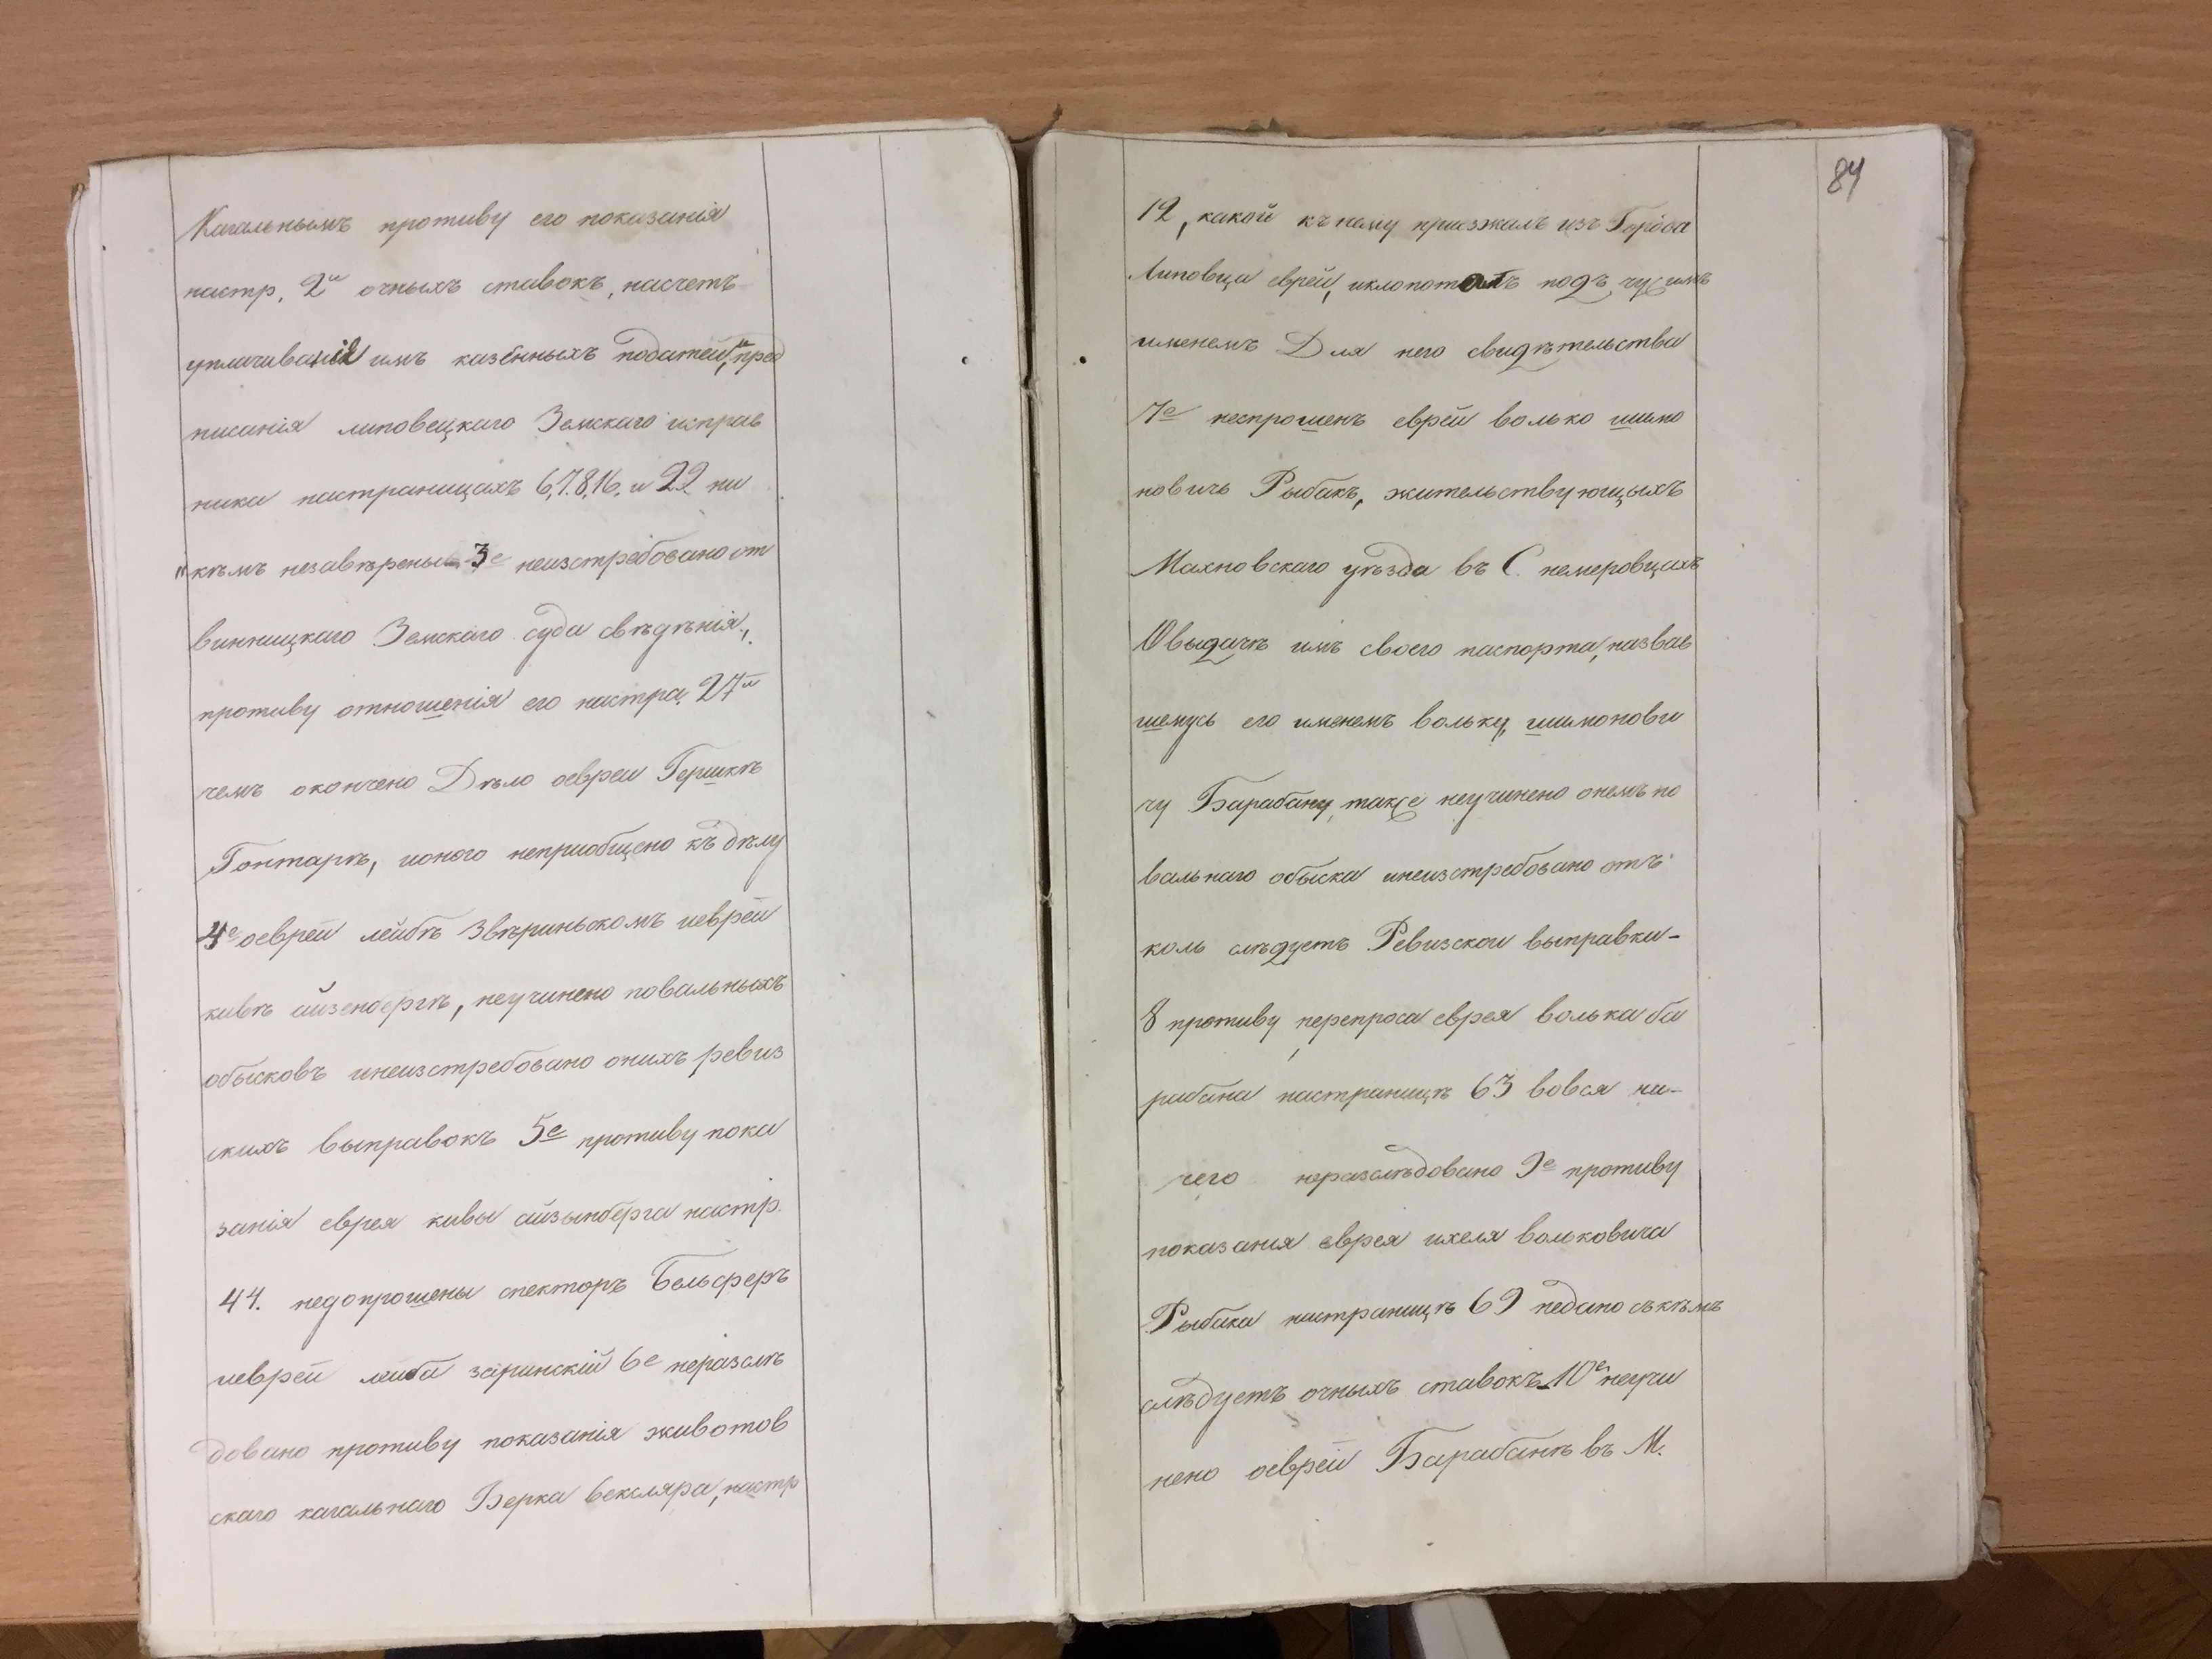 Кагальнымъ противу его показанія
настр, 2й очныхъ ставокъ, насчетъ
уплачиванія имъ казенныхъ податей, и пред
писанія липовецкаго Земскаго исправ
ника настраницахъ 6,7.8,16, и 22 ни
"кѣмъ незавѣрены 3е неизстребовано от
винницкаго Земскаго суда свѣдѣнія,
противу отношенія его настра, 27й
чемъ окончено Дѣло оевреи Гершкѣ
Гонтарѣ, ионого неприобщено къ дѣлу
4е оеврей лейбѣ Звѣриньскомъ иеврей
кивѣ айзенбергѣ, неучинено повальныхъ
обысковъ инеизстребовано онихъ ревиз
скихъ выправокъ 5е противу пока
занія еврея кивы айзынберга настр.
44. недопрошены спекторъ Бельферъ
иеврей лейба заринскій 6е неразслѣ
довано противу показанія животов
скаго кагальнаго Берка вексляра, настр
84
12, какой къ нему приезжалъ изъ Города
Липовца еврей, иклопотатъ подъ чужимъ
именемъ Для него свидѣтельства
7е неспрошенъ еврей волько шимо
новичь Рыбакъ, жительствующыхъ
Махновскаго уѣзда въ С. немеровцахъ
Овыдачѣ имъ своего паспорта, назвав
шемусь его именемъ вольку, шимонови
чу Барабану, также неучинено онемъ по
вальнаго обыска инеизстребовано отъ
коль слѣдуетъ Ревизской выправки-
8 противу перепроса еврея волька ба
рабана настраницѣ 63 вовся ни-
чего неразслѣдовано 9е противу
показания еврея ихеля волоковича
Рыбака настраницѣ 69 недано съ кѣмъ
слѣдуетъ очныхъ ставокъ 10е неучи
нено оеврей Барабанѣ въ М.